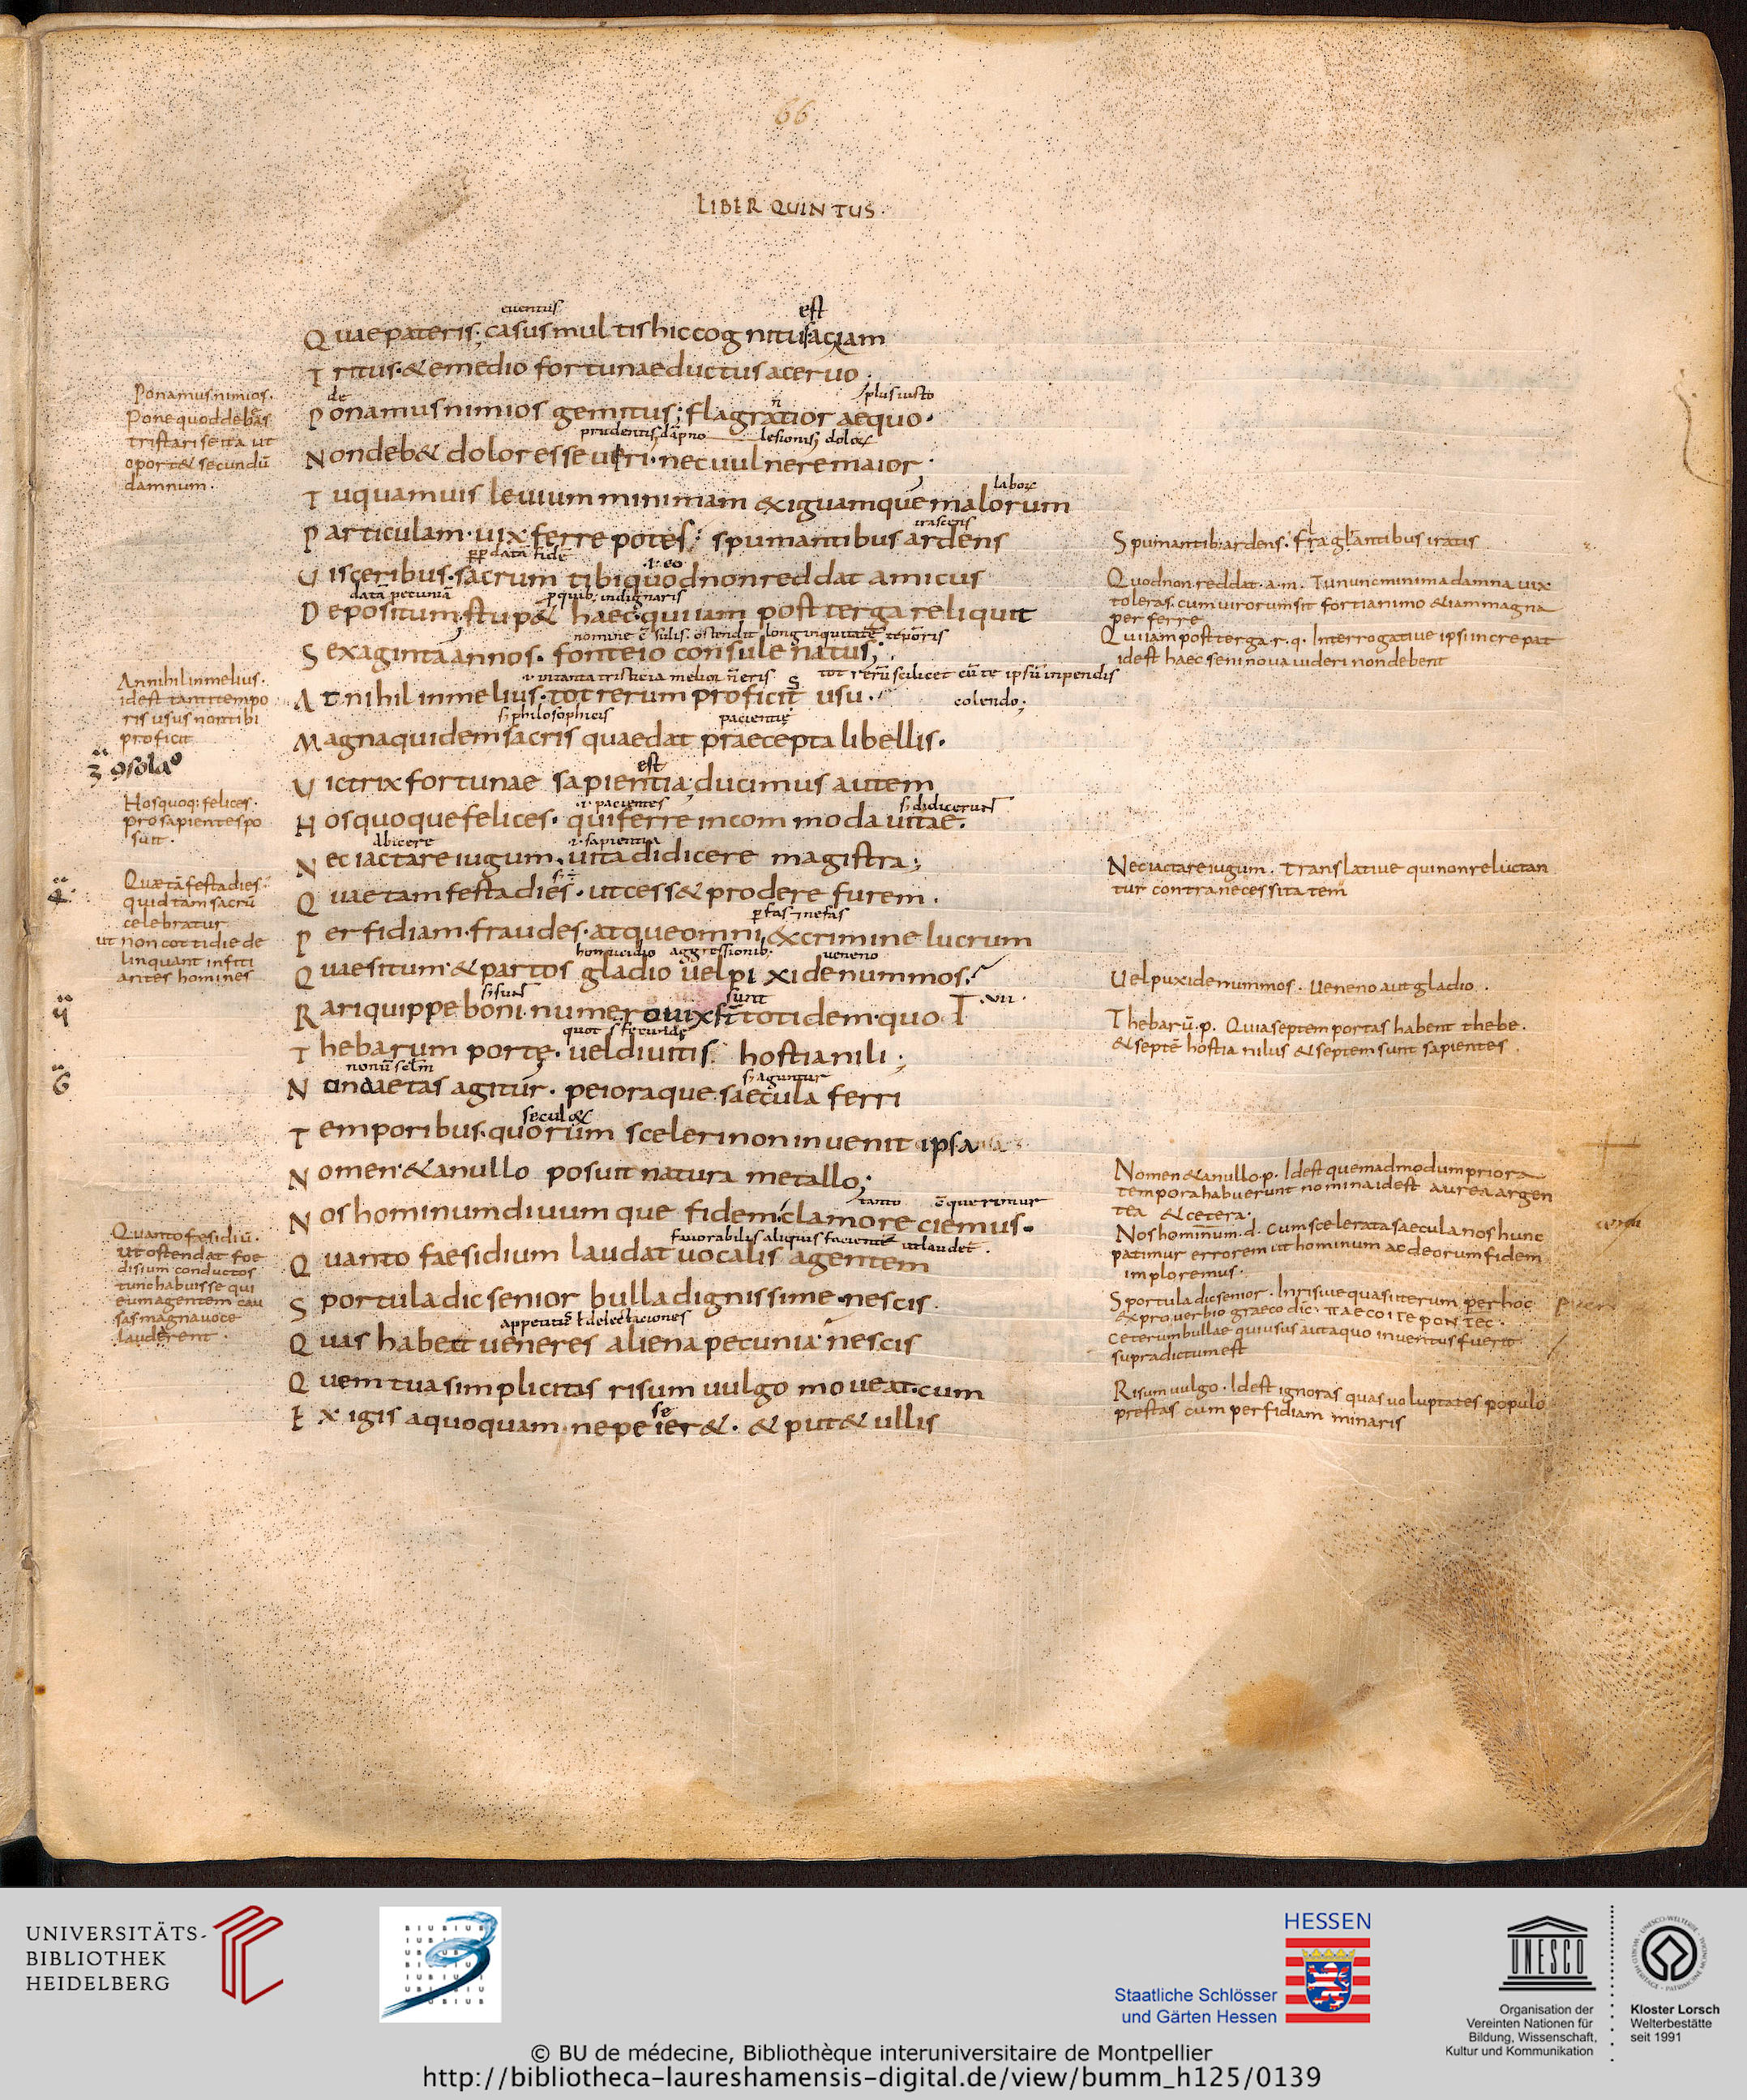 66
LIBER QUINTUS.
euentus est
Quae pateris; casus multis hic cognitus ac iam
Tritus. & e medio fortunae ductus aceruo.
de n plus iusto
Ponamus nimios gemitus; flagratior aequo.
prudentis dāpno lesionis dolor
Non deb& dolor esse uiri. nec uulnere maior;
labore
Tu quamuis leuium minimam exiguamque malorum
irascens
Particulam. uix ferre potes; spumantibus ardens
data fide .i. eo
Uisceribus. sacrum tibi quod non reddat amicus
datā pecuniā quib; indignaris
Depositum; stup& haec. qui iam post terga reliquit
nomine ē silis. ostendit longinquitatē tēporis
Sexaginta annos. fonteio consule natus;
tot rerū scilicet cū te ipsū inpendis
At nihil in melius. tot rerum proficit usu.
colendo;
philosophicis pacientie
Magna quidem sacris quae dat praecepta libellis.
est
Uictrix fortunae sapientia; ducimus autem
.i. pacientes didicerunt
Hos quoque felices. qui ferre incommoda uitae.
abicere .i. sapientia
Nec iactare iugum, uita didicere magistra;
Quae tam festa dies. ut cess& prodere furem.
p fas nefas
Perfidiam. fraudes. atque omni ex crimine lucrum
homicidio aggressionib; ueneno
Quaesitum. & partos gladio uel pixide nummos?
sunt .vii.
Rari quippe boni. numero uix st totidem. quot
quot fecunde
Thebarum portę. uel diuitis hostia nili;
nonū sclm aguntur
Nunc aetas agitur. peioraque saecula ferri
secul&
Temporibus. quorum sceleri non inuenit ipsa
Nomen. & a nullo posuit natura metallo;
tanto querimur
Nos hominum diuumque fidem clamore ciemus.
fauorabilis aliquis facientē ut laudet.
Quanto faesidium laudat uocalis agentem
Sportula dic senior bulla dignissime. nescis
appetitus t delectaciones
Quas habeat ueneres aliena pecunia; nescis
Quem tua simplicitas risum uulgo moueat. cum
se
Exigis a quoquam ne peier&. & put& ullis
Ponamus nimios.
Pone quod debeas
tristari se ita ut
oport& secundū
damnum.
At nihil in melius.
id est tanti tempo
ris usus non tibi
proficit
Hos quoq; felices.
pro sapientes po
sun̄.
Quae tā festa dies.
quid tam sacrū
celebratur
ut non cottidie de
linquant infiti
antes homines
Quanto fesidiū.
ut ostendat foe
disium conductos
tunc habuisse qui
eum agentem cau
sas magna uoce
lauderent.
Spumantib; ardens. fraglantibus iratis
Quod non reddat. a. m. Tu nunc minima damna uix
toleras. cum uirorum sit forti animo & iam magna
perferre
Qui iam post terga. r. q. Interrogatiue ipsi increpat
id est haec seni noua uideri non debent
Nec iactare iugum. Translatiue qui non reluctan
tur contra necessitatem
Uel puxide nummos. ueneno aut gladio.
Thebarū. p. Quia septem portas habent thebe.
& septē hostia nilus & septem sunt sapientes.
Nomen & a nullo p. Id est quemadmodum priora
tempora habuerunt nomina id est aurea argen
tea & cetera.
Nos hominum. d. cum scelerata saecula nos hunc
patimur errorem ut hominum ac deorum fidem
imploremus.
Sportula dic senior. Inrisiue quasi iterum per hoc
& prouerbio graeco dic. ΠΑΕCΟΙΤΕΡΟΝΤΕC.
ceterum bullae qui usus aut a quo inuentus fuerit
supra dictum est
Risum uulgo. Id est ignoras quas uoluptates populo
prestas cum perfidiam minaris
UNIVERSITÄTS-
BIBLIOTHEK
HEIDELBERG
HESSEN
Staatliche Schlösser
und Gärten Hessen
UNESCO
Organisation der
Vereinten Nationen für
Bildung, Wissenschaft,
Kultur und Kommunikation
Kloster Lorsch
Welterbestätte
seit 1991
© BU de médecine, Bibliothèque interuniversitaire de Montpellier
http://bibliotheca-laureshamensis-digital.de/view/bumm_h125/0139